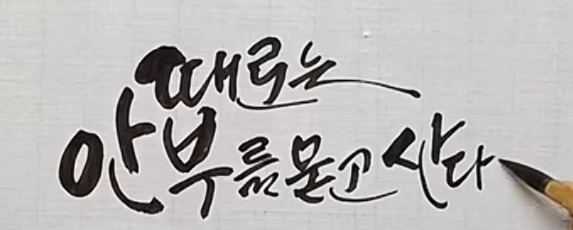 때로는
안부를 묻고 산다